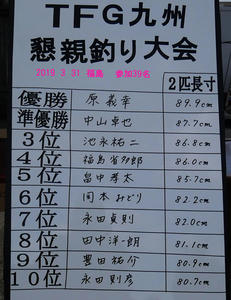 TFG九州
懇親釣り大会
2019 3 31 福島 参加39名
2匹長寸
優勝 原 義幸 89.9cm
準優勝 中山卓也 87.7cm
3位 池永祐二 86.8cm
4位 福島 郎 86.0cm
5位 畠中孝太 85.7cm
6位 岡本みどり 82.2cm
7位 永田貞則 82.0cm
8位 田中洋一朗 81.1cm
9位 豊田祐介 80.9cm
10位 永田則彦 80.7cm